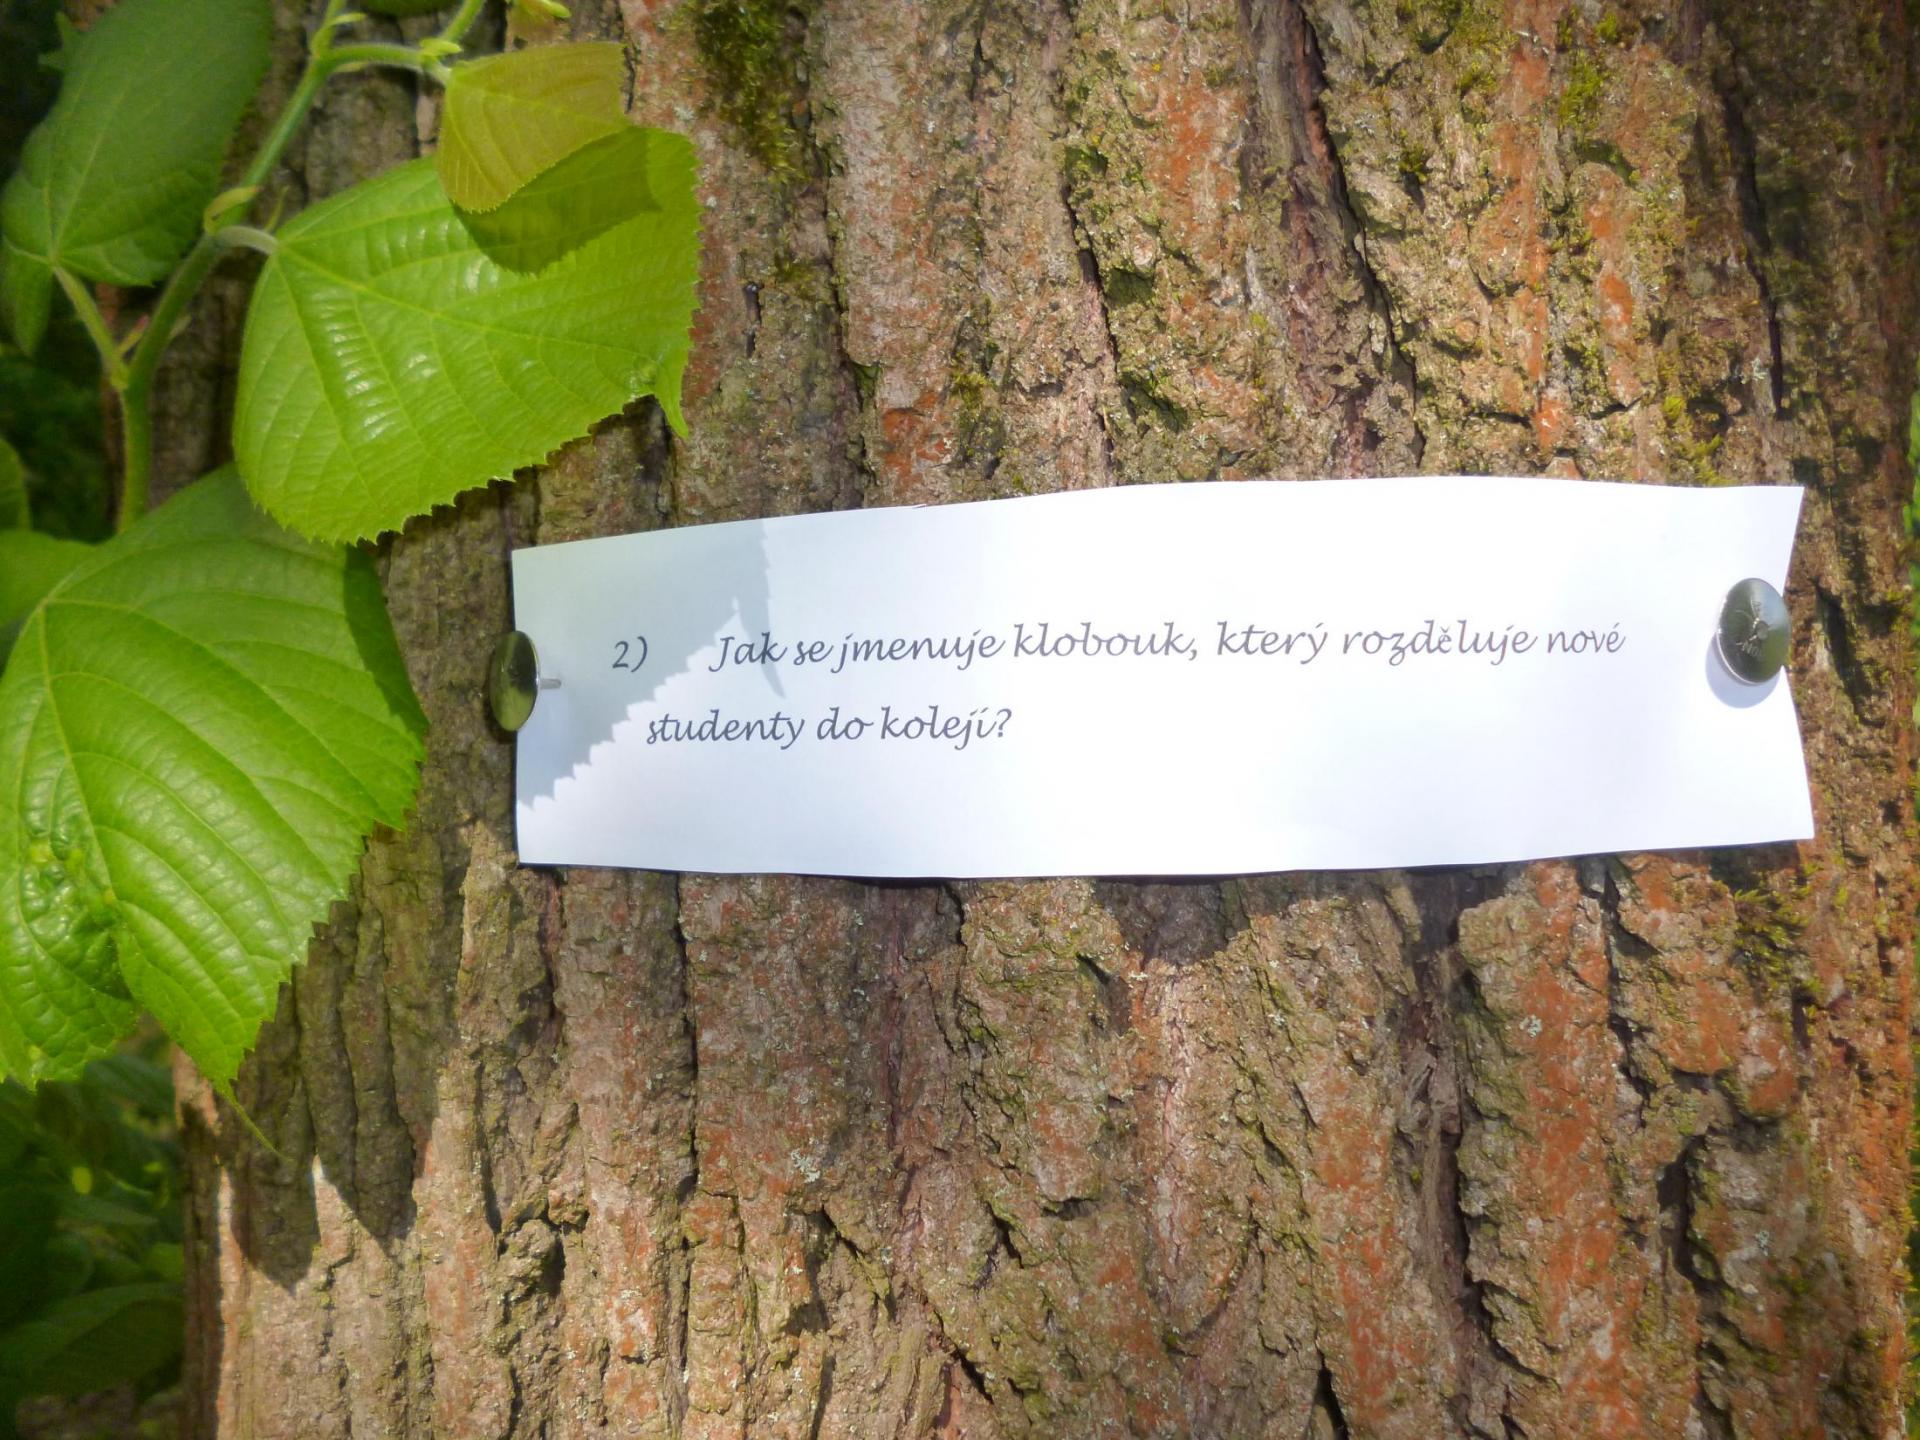 2) Jak se jmenuje klobouk, který rozděluje nové
studenty do kolejí?